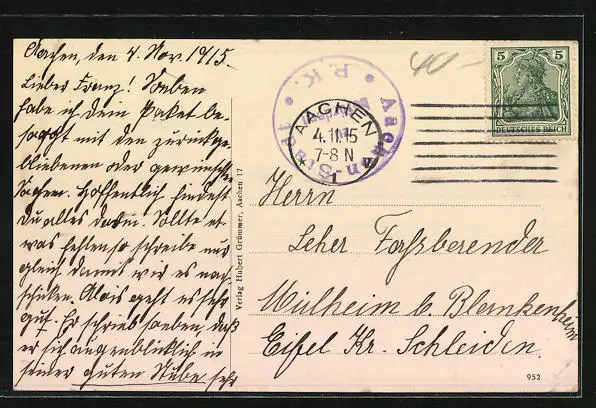 Aachen, den 4. Nov. 1915.
Lieber Franz! Soeben
habe ich dein Paket be-
sorgt mit den zurückge-
bliebenen oder gewünschten
Sachen. Hoffentlich findest
Du alles darin. Sollte et-
was fehlen so schreibe nur
gleich damit wir es nach-
schicken. Alois geht es sehr
gut. Er schrieb soeben, daß
er sich augenblicklich in
seiner guten Stube sehr
Verlag Hubert Grümmer, Aachen 17
P. K.
Aachen
AACHEN
4.11.15
7-8 N
40-
5 5
DEUTSCHES REICH
Herrn
Lehrer Forssberender
Mülheim b. Blankenheim
Eifel Kr. Schleiden.
952